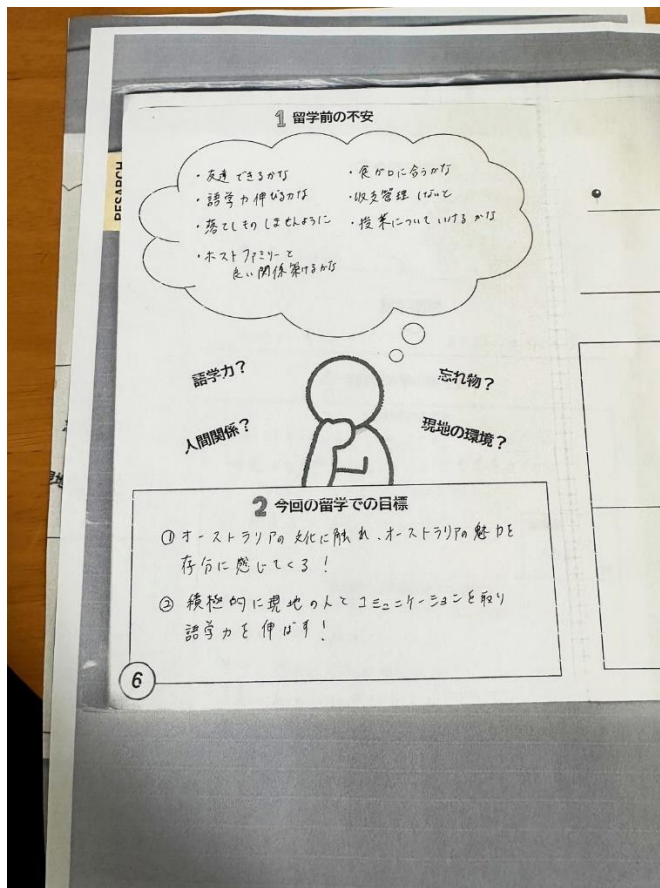 RESARCH
1 留学前の不安
・友達できるかな
・語学力伸びるかな
・落としものしませんように
・ホストファミリーと
良い関係築けるかな
・食が口に合うかな
・収支管理しないと
・授業についていけるかな
語学力?
忘れ物?
人間関係?
現地の環境?
2 今回の留学での目標
①オーストラリアの文化に触れ、オーストラリアの魅力を
存分に感じてくる!
②積極的に現地の人とコミュニケーションを取り
語学力を伸ばす!
6